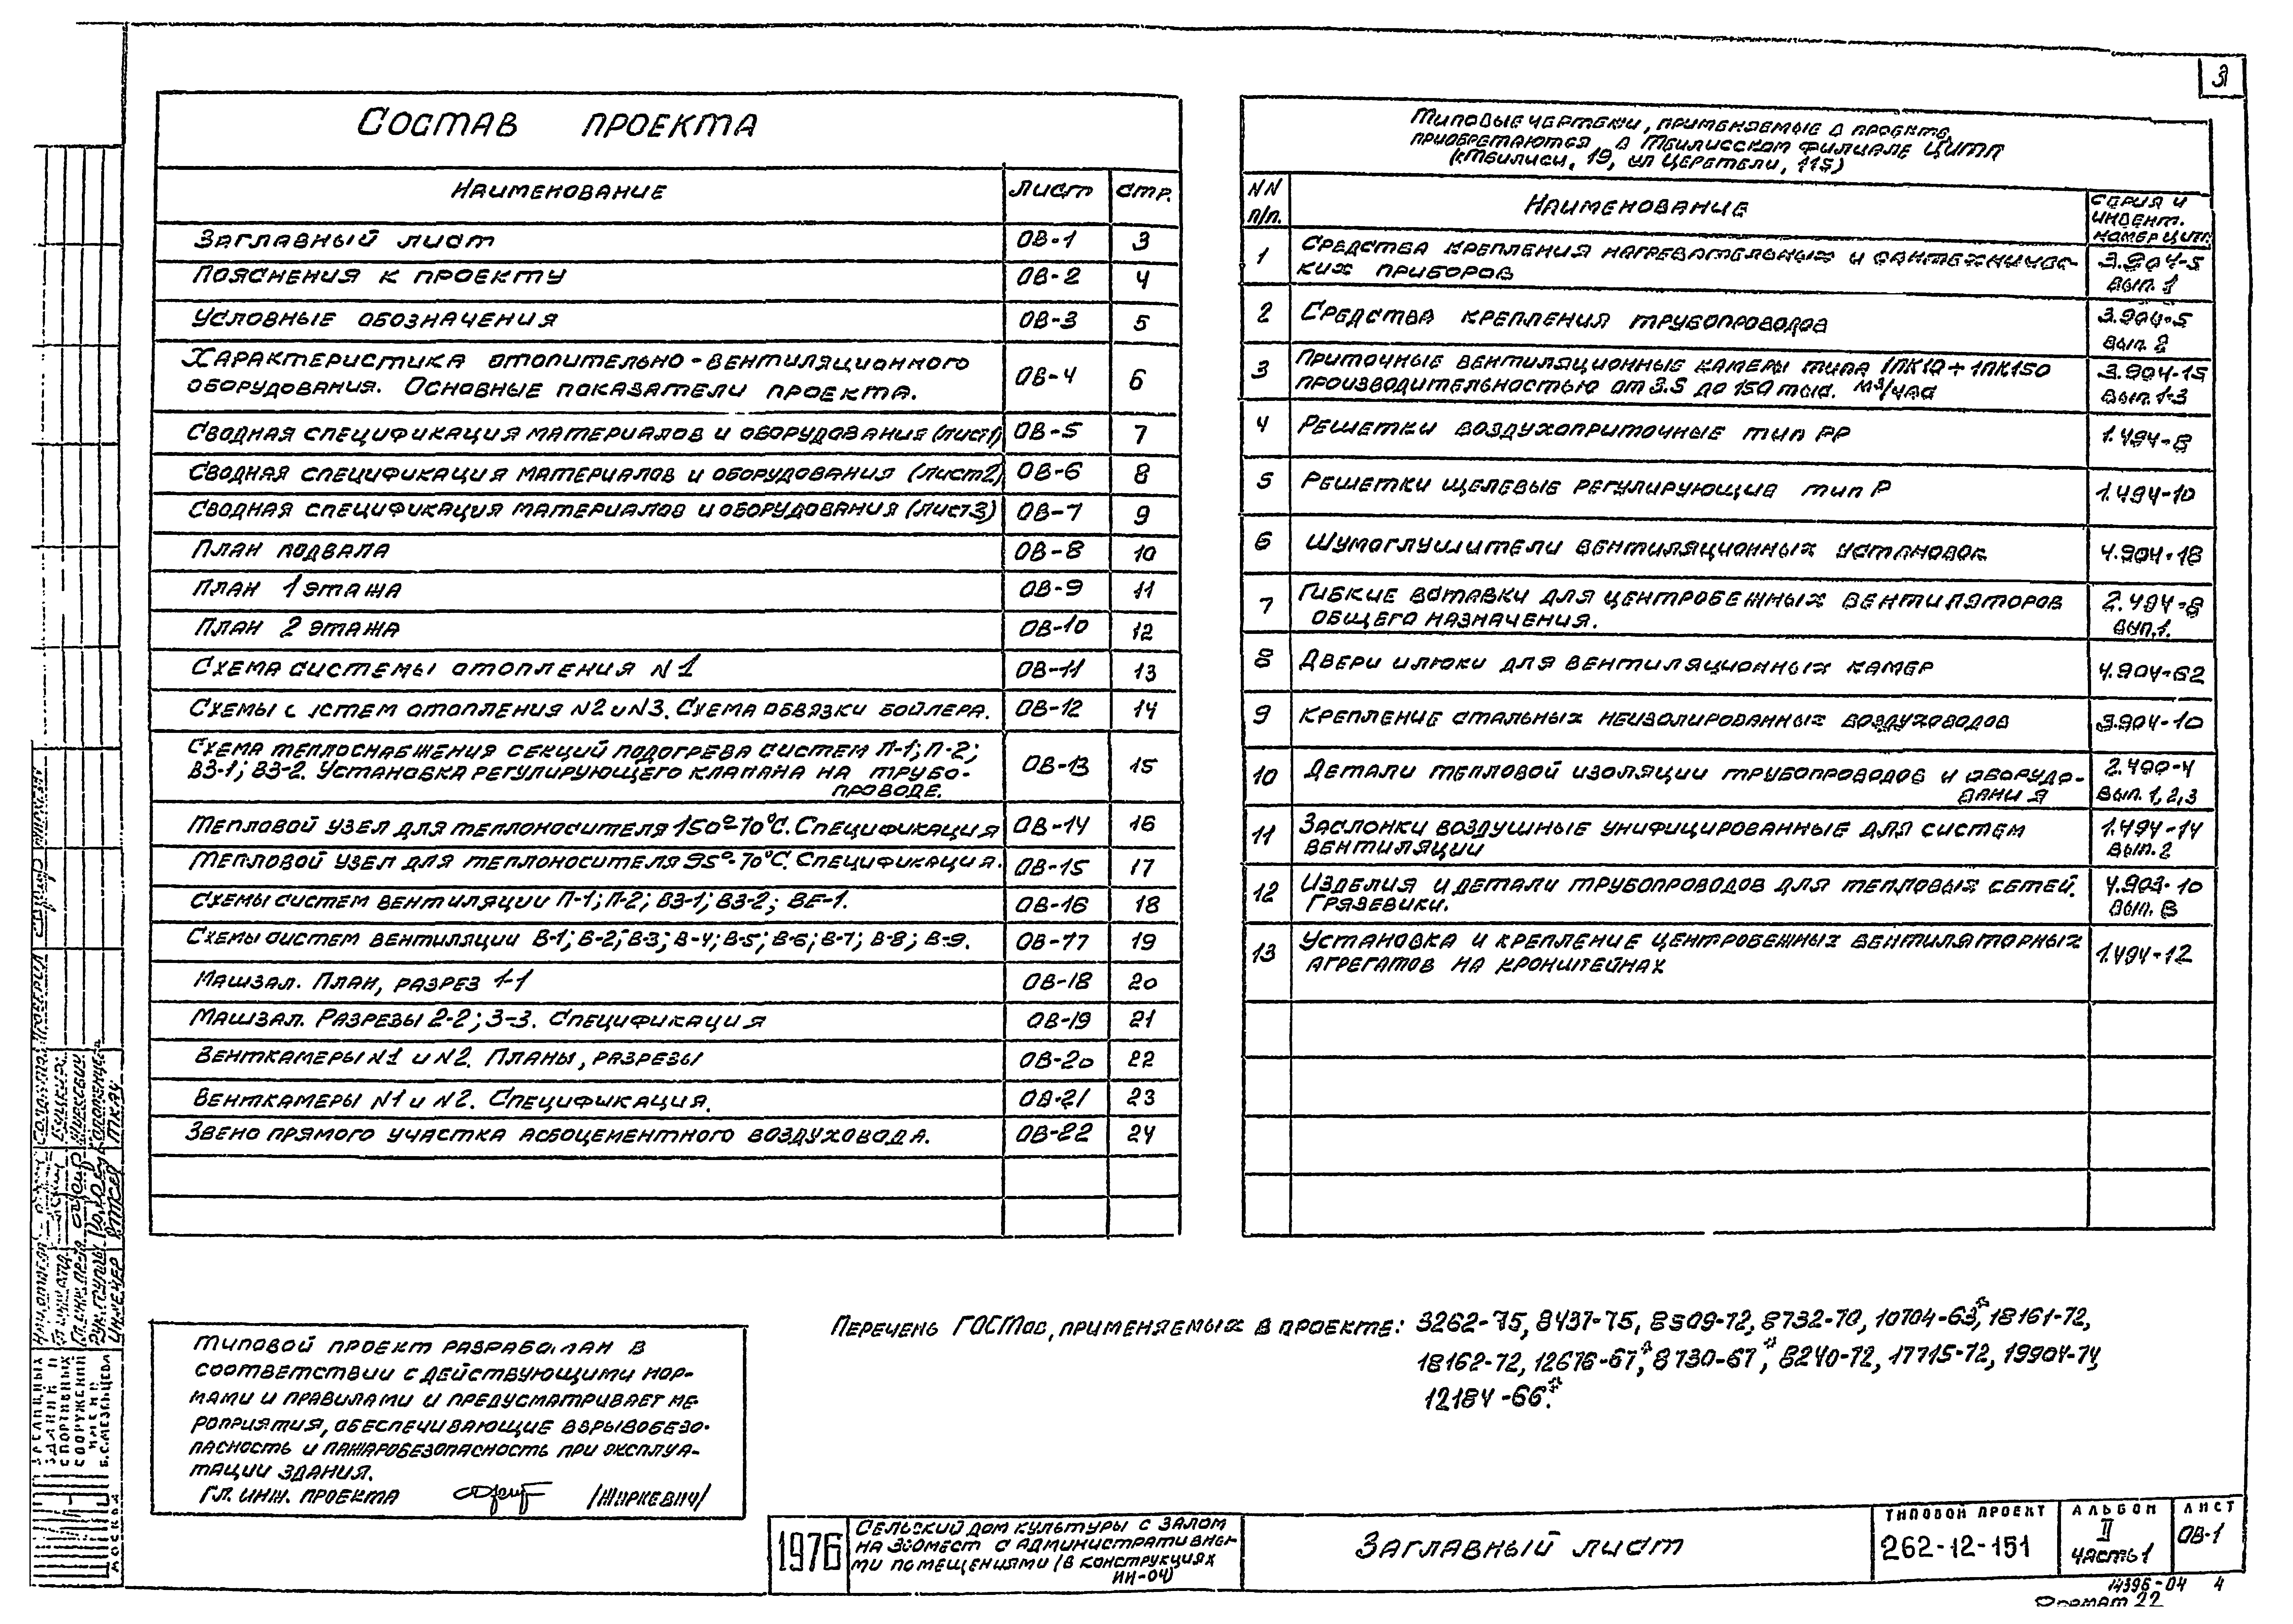 3
Состав проекта
Наименование Лист Стр.
Заглавный лист ОВ-1 3
Пояснения к проекту ОВ-2 4
Условные обозначения ОВ-3 5
Характеристика отопительно-вентиляционного
оборудования. Основные показатели проекта. ОВ-4 6
Сводная спецификация материалов и оборудования (лист1) ОВ-5 7
Сводная спецификация материалов и оборудования (лист2) ОВ-6 8
Сводная спецификация материалов и оборудования (лист3) ОВ-7 9
План подвала ОВ-8 10
План 1 этажа ОВ-9 11
План 2 этажа ОВ-10 12
Схема системы отопления N1 ОВ-11 13
Схемы систем отопления N2 и N3. Схема обвязки бойлера. ОВ-12 14
Схема теплоснабжения секций подогрева систем П-1; П-2;
ВЗ-1; ВЗ-2. Установка регулирующего клапана на трубо-
проводе. ОВ-13 15
Тепловой узел для теплоносителя 150°-70°С. Спецификация ОВ-14 16
Тепловой узел для теплоносителя 95°-70°С. Спецификация. ОВ-15 17
Схемы систем вентиляции П-1; П-2; ВЗ-1; ВЗ-2; ВЕ-1. ОВ-16 18
Схемы систем вентиляции В-1; В-2; В-3; В-4; В-5; В-6; В-7; В-8; В-9. ОВ-17 19
Машзал. План, разрез 1-1 ОВ-18 20
Машзал. Разрезы 2-2; 3-3. Спецификация ОВ-19 21
Венткамеры N1 и N2. Планы, разрезы ОВ-20 22
Венткамеры N1 и N2. Спецификация. ОВ-21 23
Звено прямого участка асбоцементного воздуховода. ОВ-22 24
Типовые чертежи, применяемые в проекте,
приобретаются в Тбилисском филиале ЦИТП
(г.Тбилиси, 19, ул Церетели, 115)
NN п/п. Наименование Серия и инвент. номер ЦИТП
1 Средства крепления нагревательных и сантехничес-
ких приборов 3.904-5 вып. 1
2 Средства крепления трубопроводов 3.904-5 вып. 2
3 Приточные вентиляционные камеры типа 1ПК10÷1ПК150
производительностью от 3.5 до 150 тыс. м³/час 3.904-15 вып. 1-3
4 Решетки воздухоприточные тип РР 1.494-8
5 Решетки щелевые регулирующие тип Р 1.494-10
6 Шумоглушители вентиляционных установок 4.904-18
7 Гибкие вставки для центробежных вентиляторов
общего назначения. 2.494-8 вып.1.
8 Двери и люки для вентиляционных камер 4.904-62
9 Крепление стальных неизолированных воздуховодов 3.904-10
10 Детали тепловой изоляции трубопроводов и оборудо-
вания 2.400-4 вып. 1,2,3
11 Заслонки воздушные унифицированные для систем
вентиляции 1.494-14 вып. 2
12 Изделия и детали трубопроводов для тепловых сетей.
Грязевики. 4.903-10 вып. 8
13 Установка и крепление центробежных вентиляторных
агрегатов на кронштейнах 1.494-12
Перечень ГОСТов, применяемых в проекте: 3262-75, 8437-75, 8509-72, 8732-70, 10704-63*, 18161-72,
18162-72, 12676-67*, 8730-67*, 8240-72, 17715-72, 19904-74,
12184-66*.
Типовой проект разработан в
соответствии с действующими нор-
мами и правилами и предусматривает ме-
роприятия, обеспечивающие взрывобезо-
пасность и пожаробезопасность при эксплуа-
тации здания.
Гл. инж. проекта /Жиркевич/
1976
Сельский дом культуры с залом
на 300 мест с административны-
ми помещениями (в конструкциях
ИИ-04)
Заглавный лист
Типовой проект
262-12-151
Альбом
II
часть 1
Лист
ОВ-1
14396-04 4
Формат 22
зрелищных
зданий и
спортивных
сооружений
имени
Б.С.Мезенцева
Москва
Рук. группы
Инженер
Ткач
Проверил